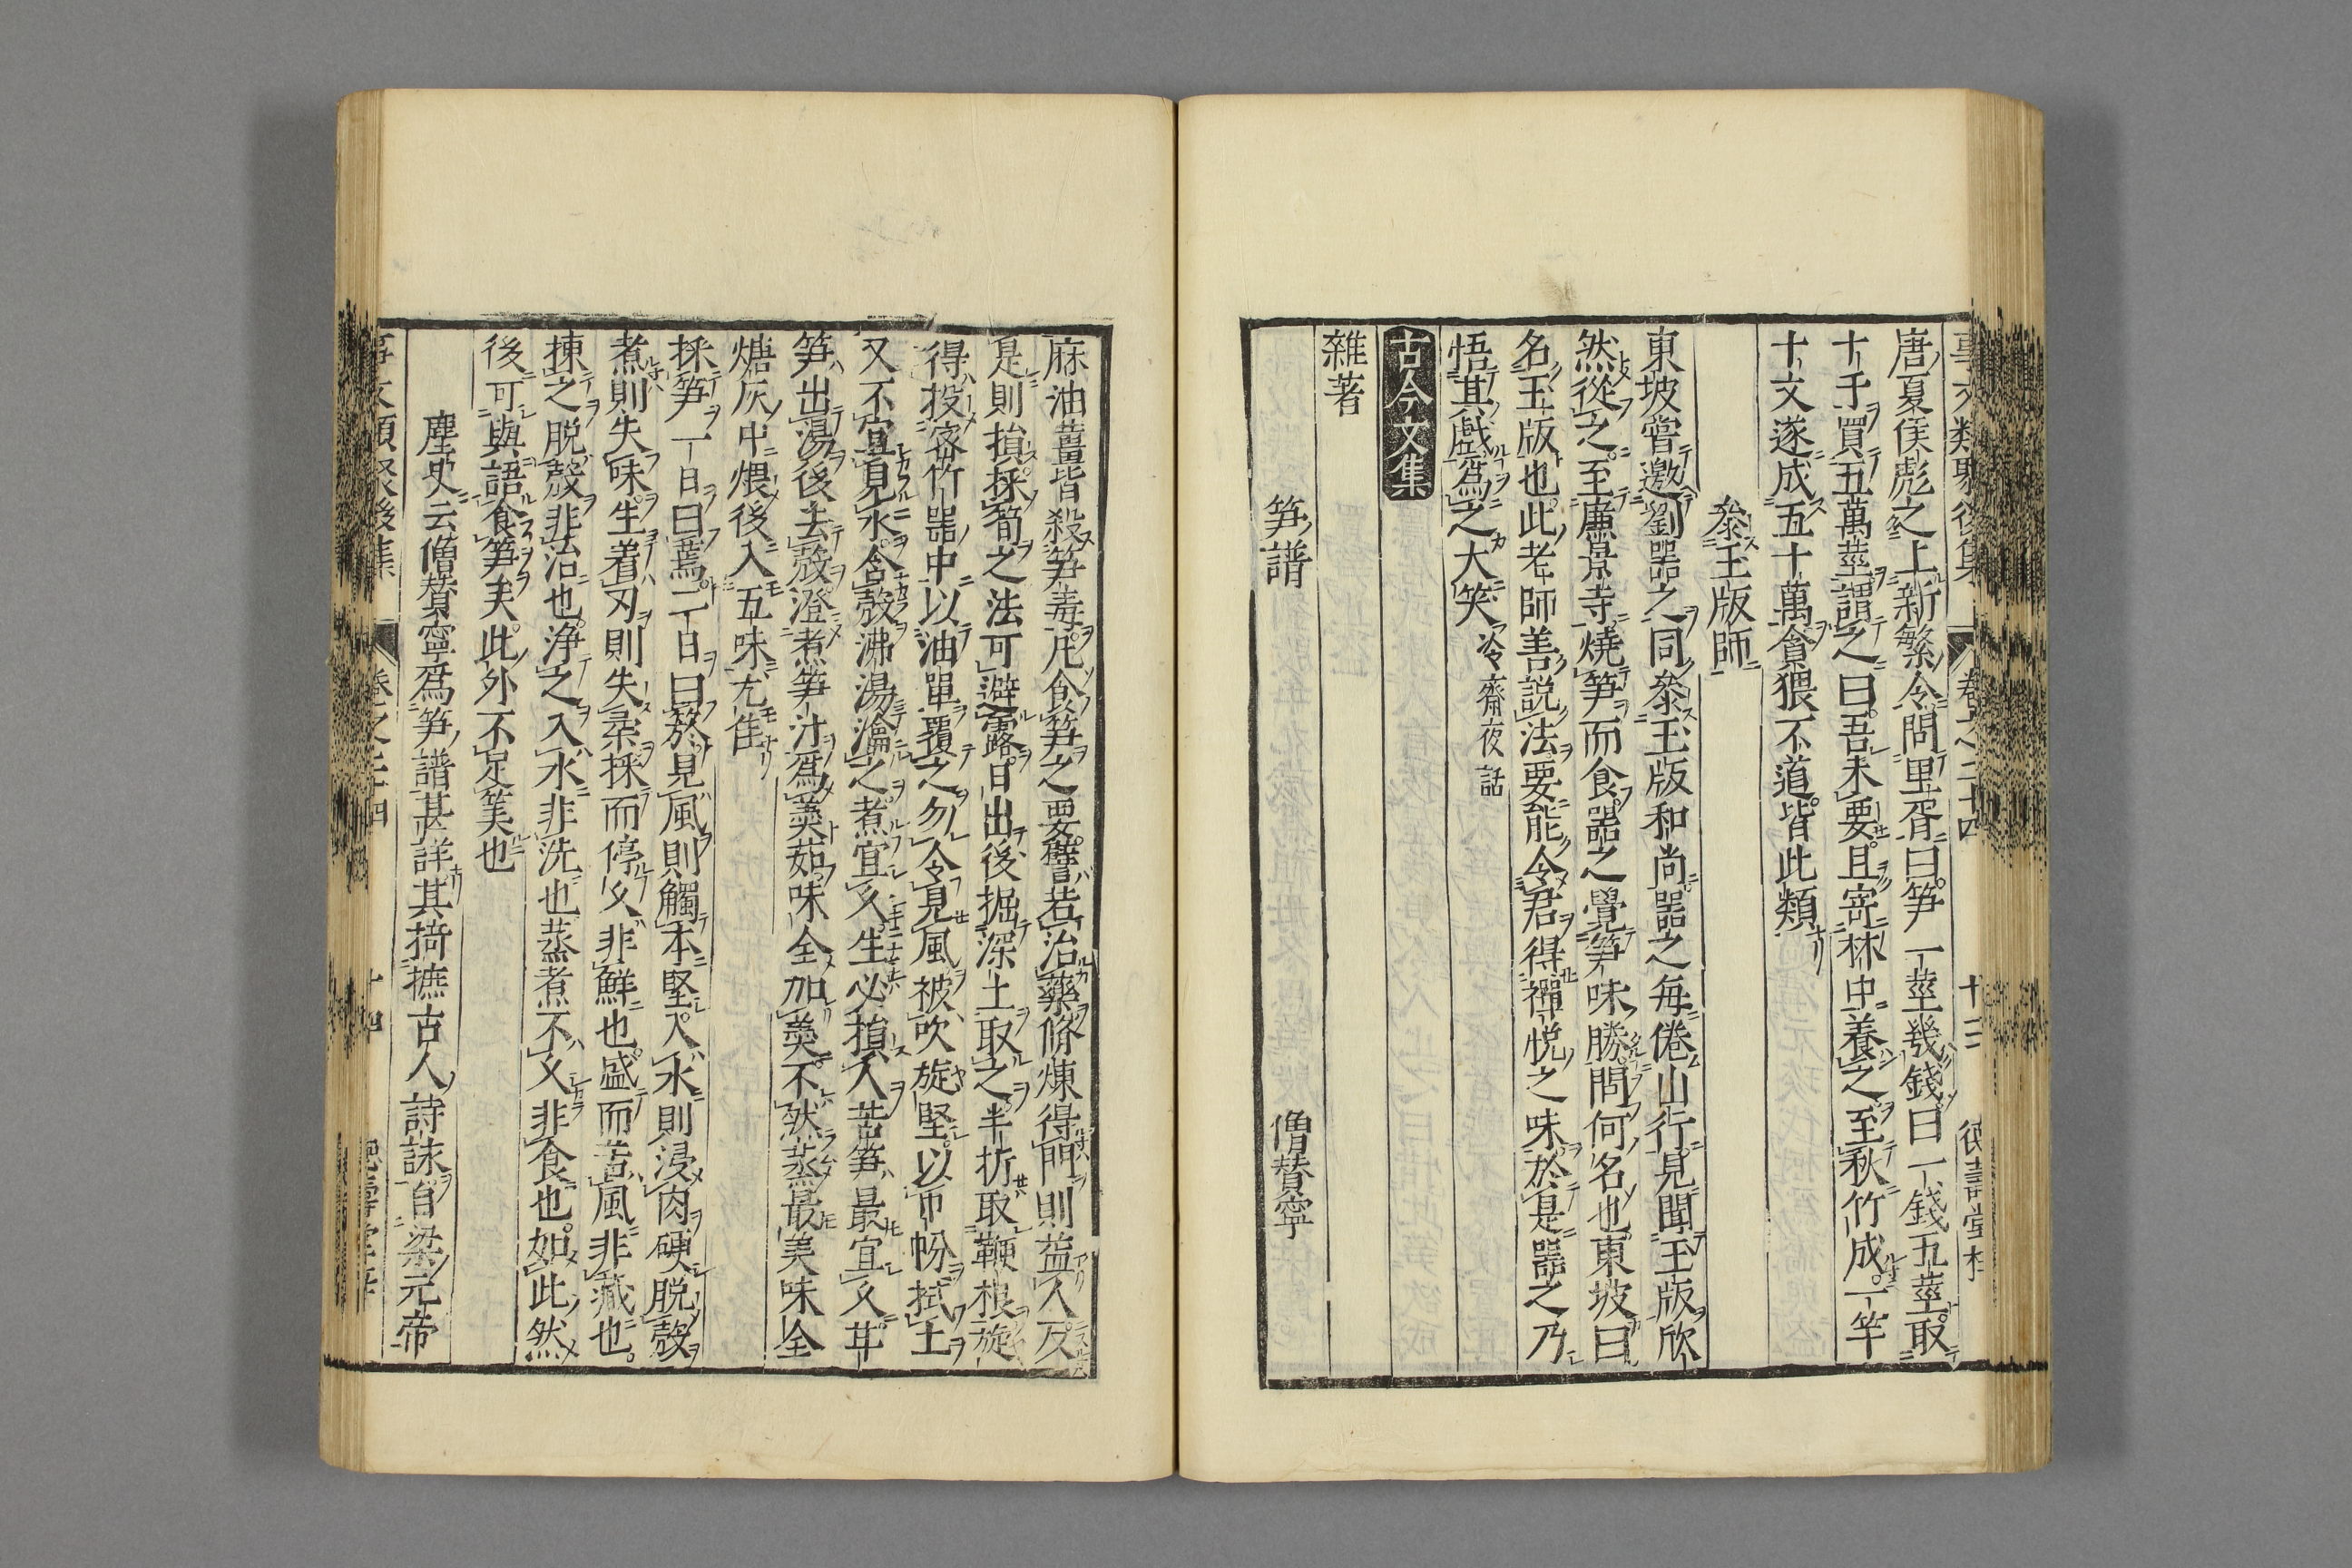 事文類聚後集 卷之二十四 十三 德壽堂梓
唐夏侯彪之上新繁令問里胥曰笋一莖幾錢曰一錢五莖取
十千買五萬莖謂之曰吾未要且寄林中養之至秋竹成一竿
十文遂成五十萬貪猥不道皆此類
叅玉版師
東坡嘗邀劉器之同叅玉版和尚器之每倦山行見聞玉版欣
然從之至廉景寺燒笋而食器之覺笋味勝問何名也東坡曰
名玉版也此老師善説法要能令君得禪悦之味於是器之乃
悟其戲爲之大笑冷齋夜話
古今文集
雜著
笋譜 僧贊寧
麻油薑皆殺笋毒凡食笋之要譬若治藥脩煉得門則益人反
是則損採筍之法可避露日出後掘深土取之半折取鞭根旋
得投密竹器中以油單覆之勿令見風被吹旋堅以巾帉拭土
又不宜見水含殼沸湯瀹之煮宜久生必損人苦笋最宜久甘
笋出湯後去殼澄煮笋汁爲羹茹味全加羹不然蒸最美味全
煻灰中煨後入五味尤佳
採笋一日曰蔫二日曰箊見風則觸本堅入水則浸肉硬脱殼
煮則失味生着刃則失柔採而停久非鮮也盛而苦風非藏也
揀之脱殼非治也淨之入水非洗也蒸煮不久非食也如此然
後可與語食笋夫此外不足笑也
塵史云僧贊寧爲笋譜甚詳其掎摭古人詩詠自梁元帝
事文類聚後集 卷之二十四 十四